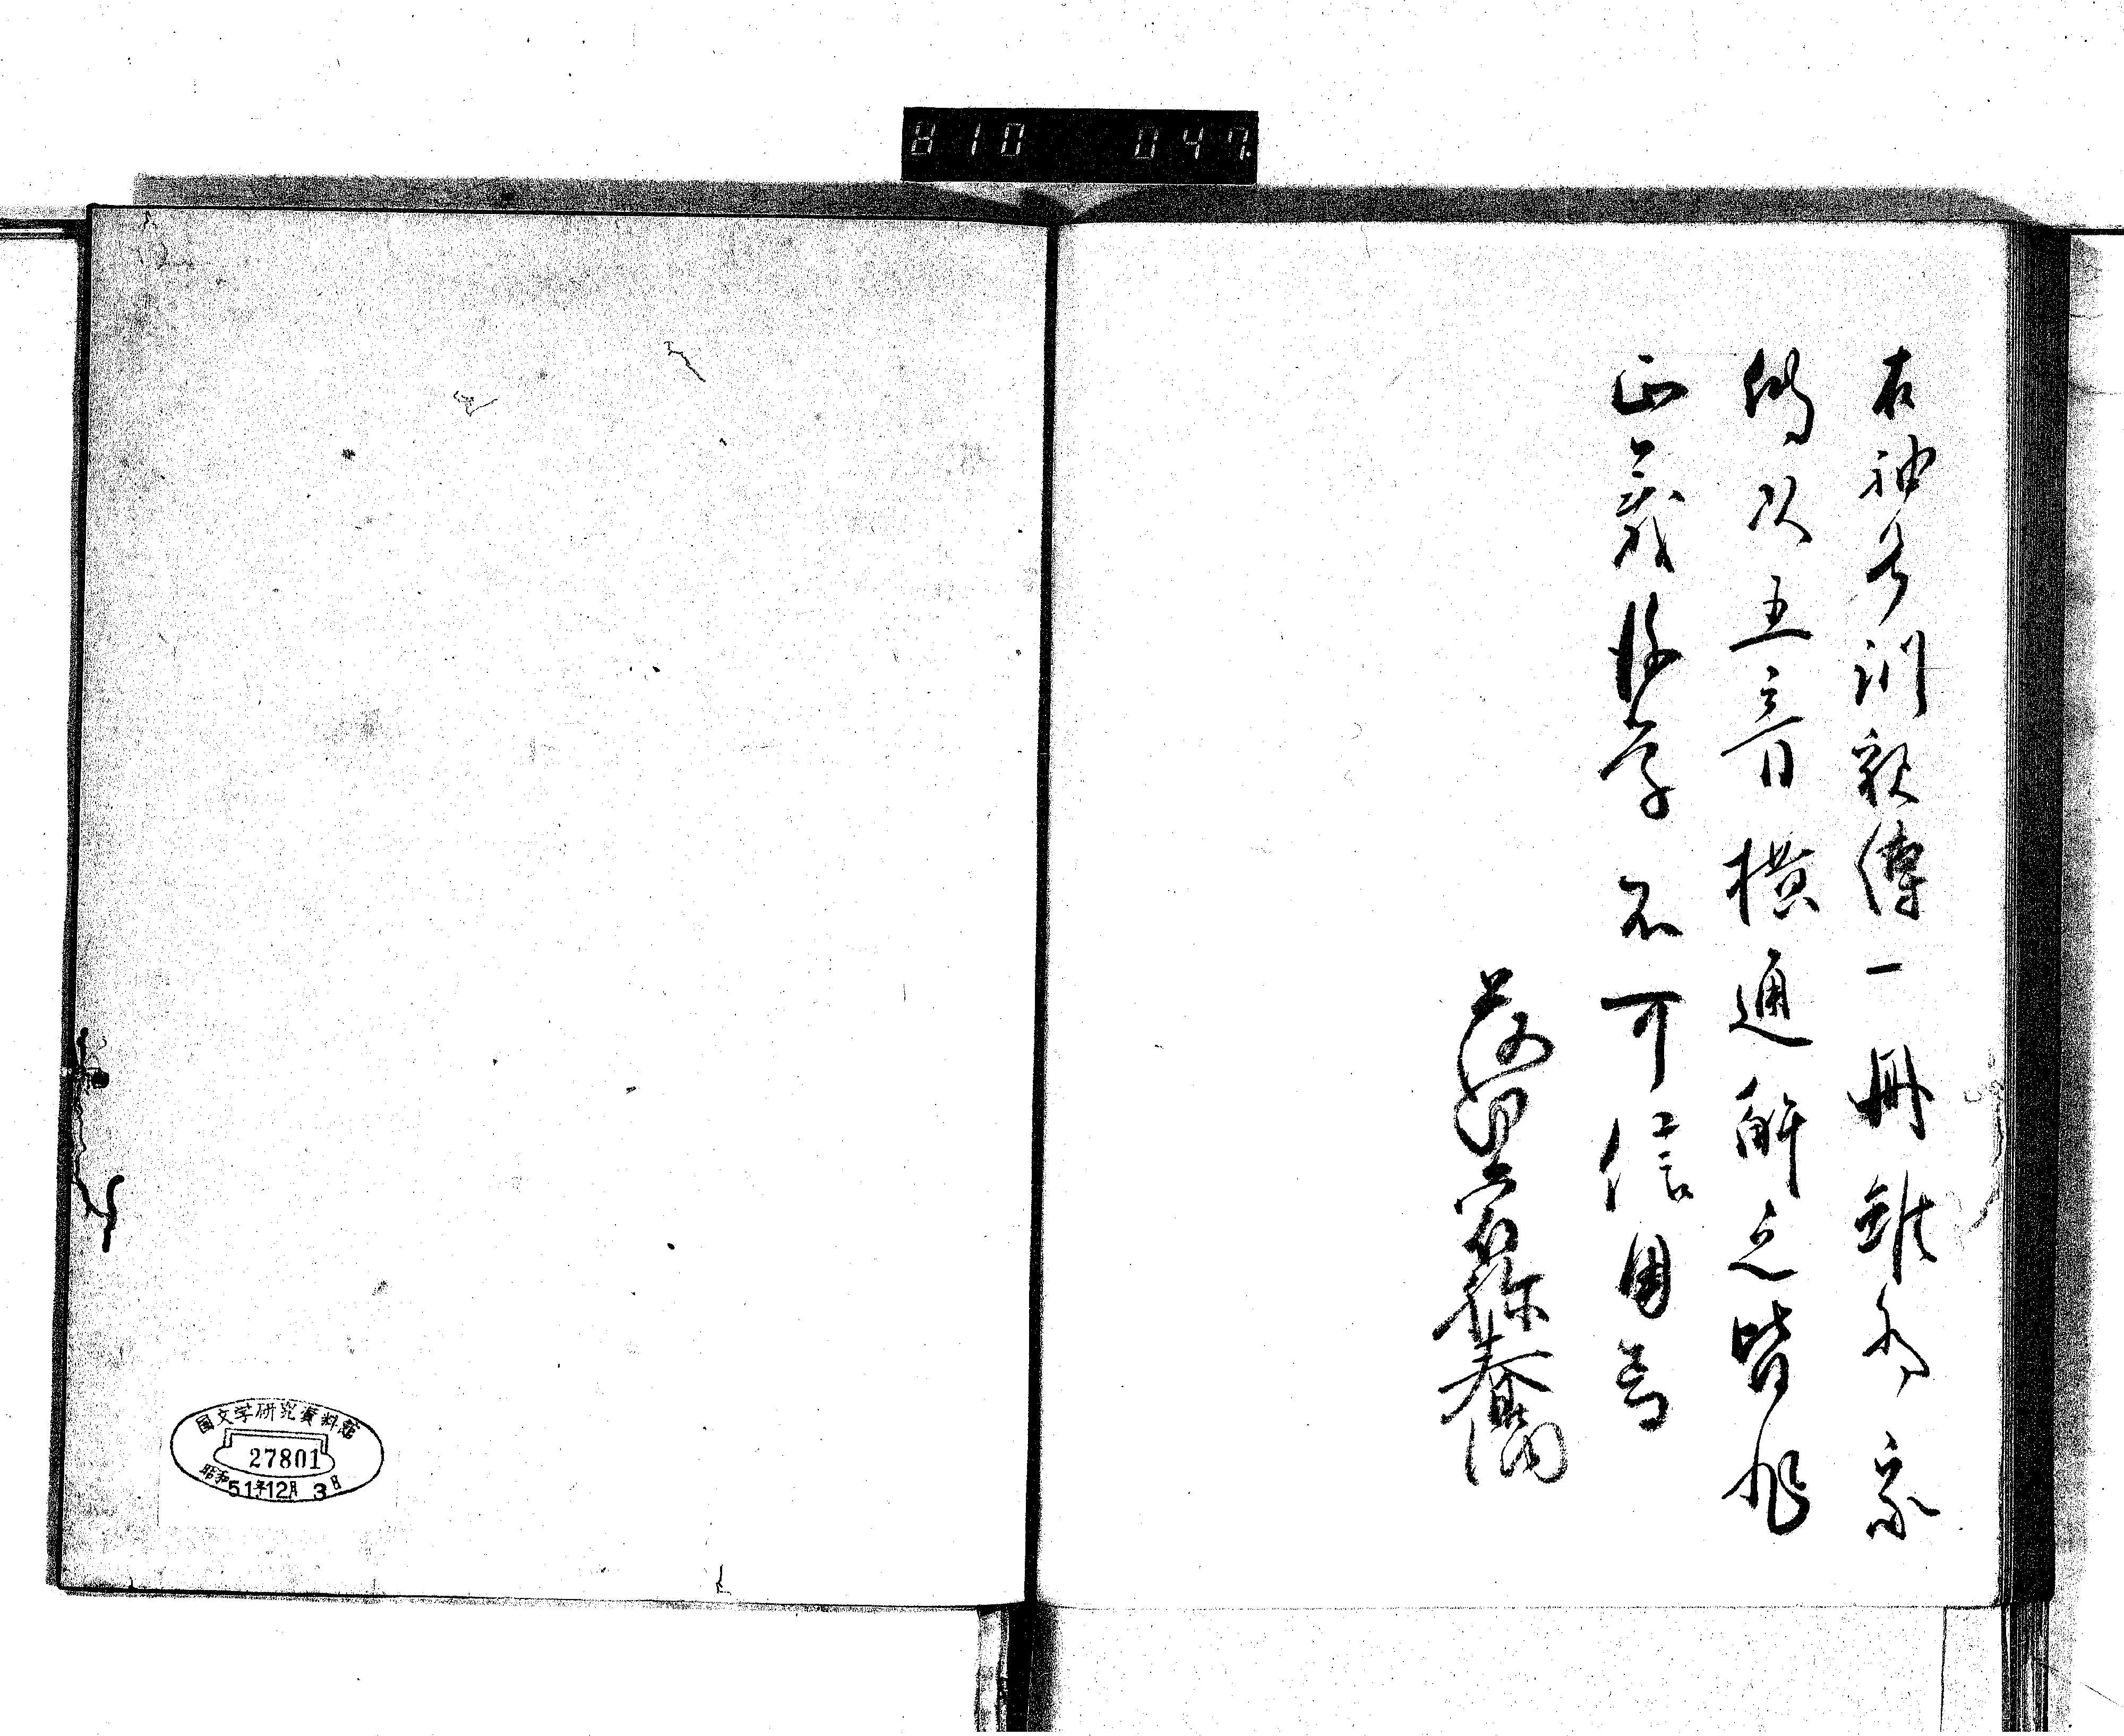 810 047.
右神名訓秘傳一冊雖為家
傳以五音横通解之皆非
正義後学不可信用焉
国文学研究資料館
27801
昭和51年12月3日